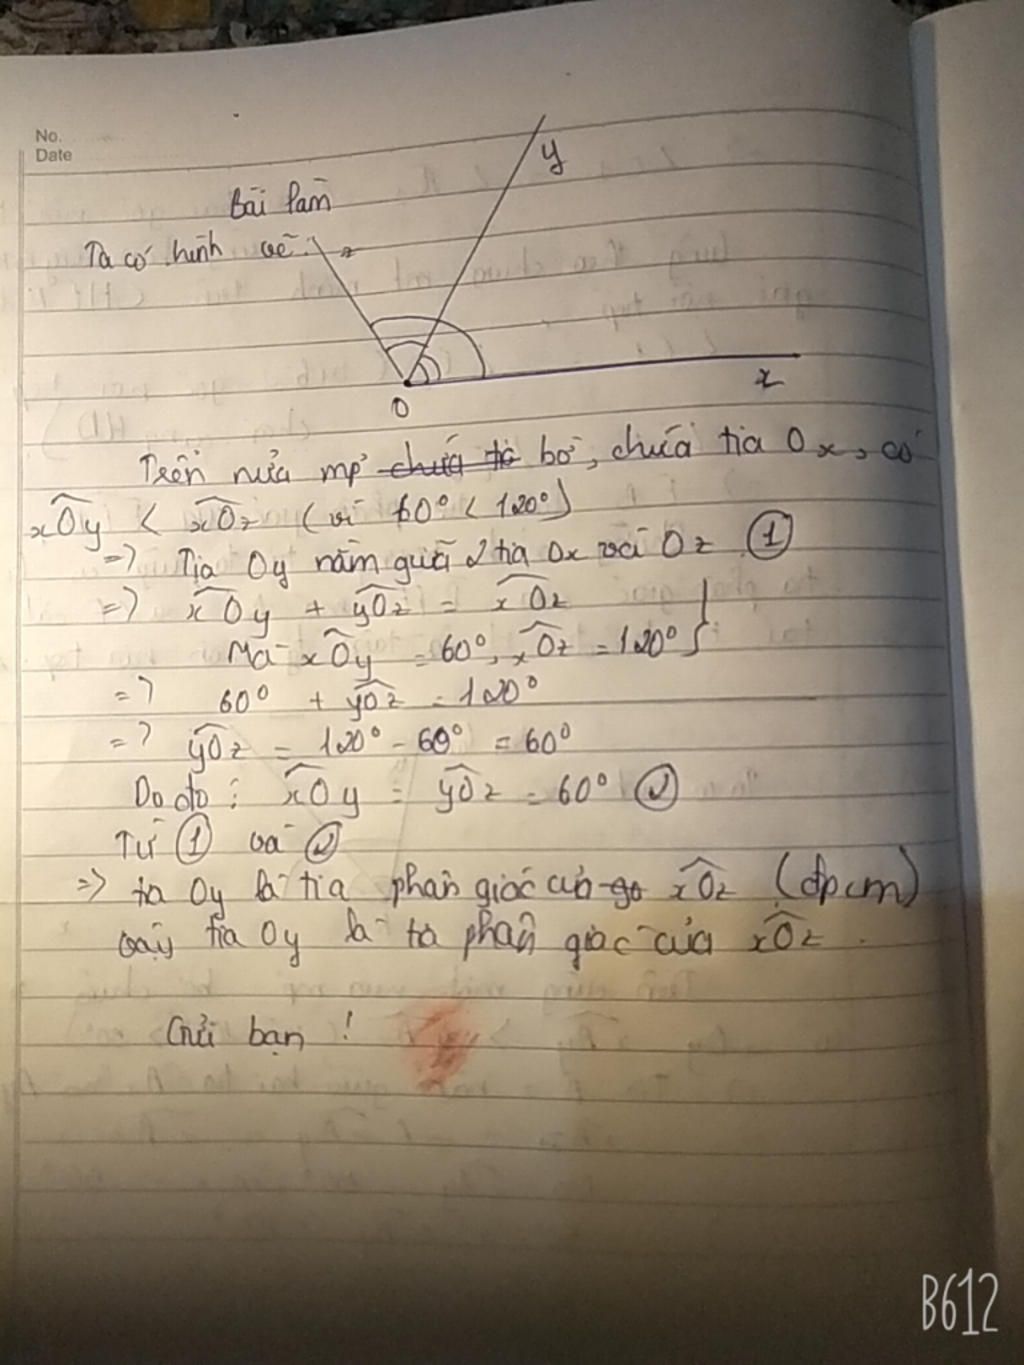 No.
Date
y
Bài làm
Ta có hình vẽ: z
x
O
Trên nửa mp chứa tia bờ, chứa tia Ox, có
xOy < xOz (vì 60° < 120°)
=> Tia Oy nằm giữa 2 tia Ox và Oz ①
=> xOy + yOz = xOz
Mà xOy = 60°, xOz = 120° }
=> 60° + yOz = 120°
=> yOz = 120° - 60° = 60°
Do đó : xOy = yOz = 60° ②
Từ ① và ②
=> tia Oy là tia phân giác của go xOz (đpcm)
vậy tia Oy là tia phân giác của xOz.
Gửi bạn !
B612